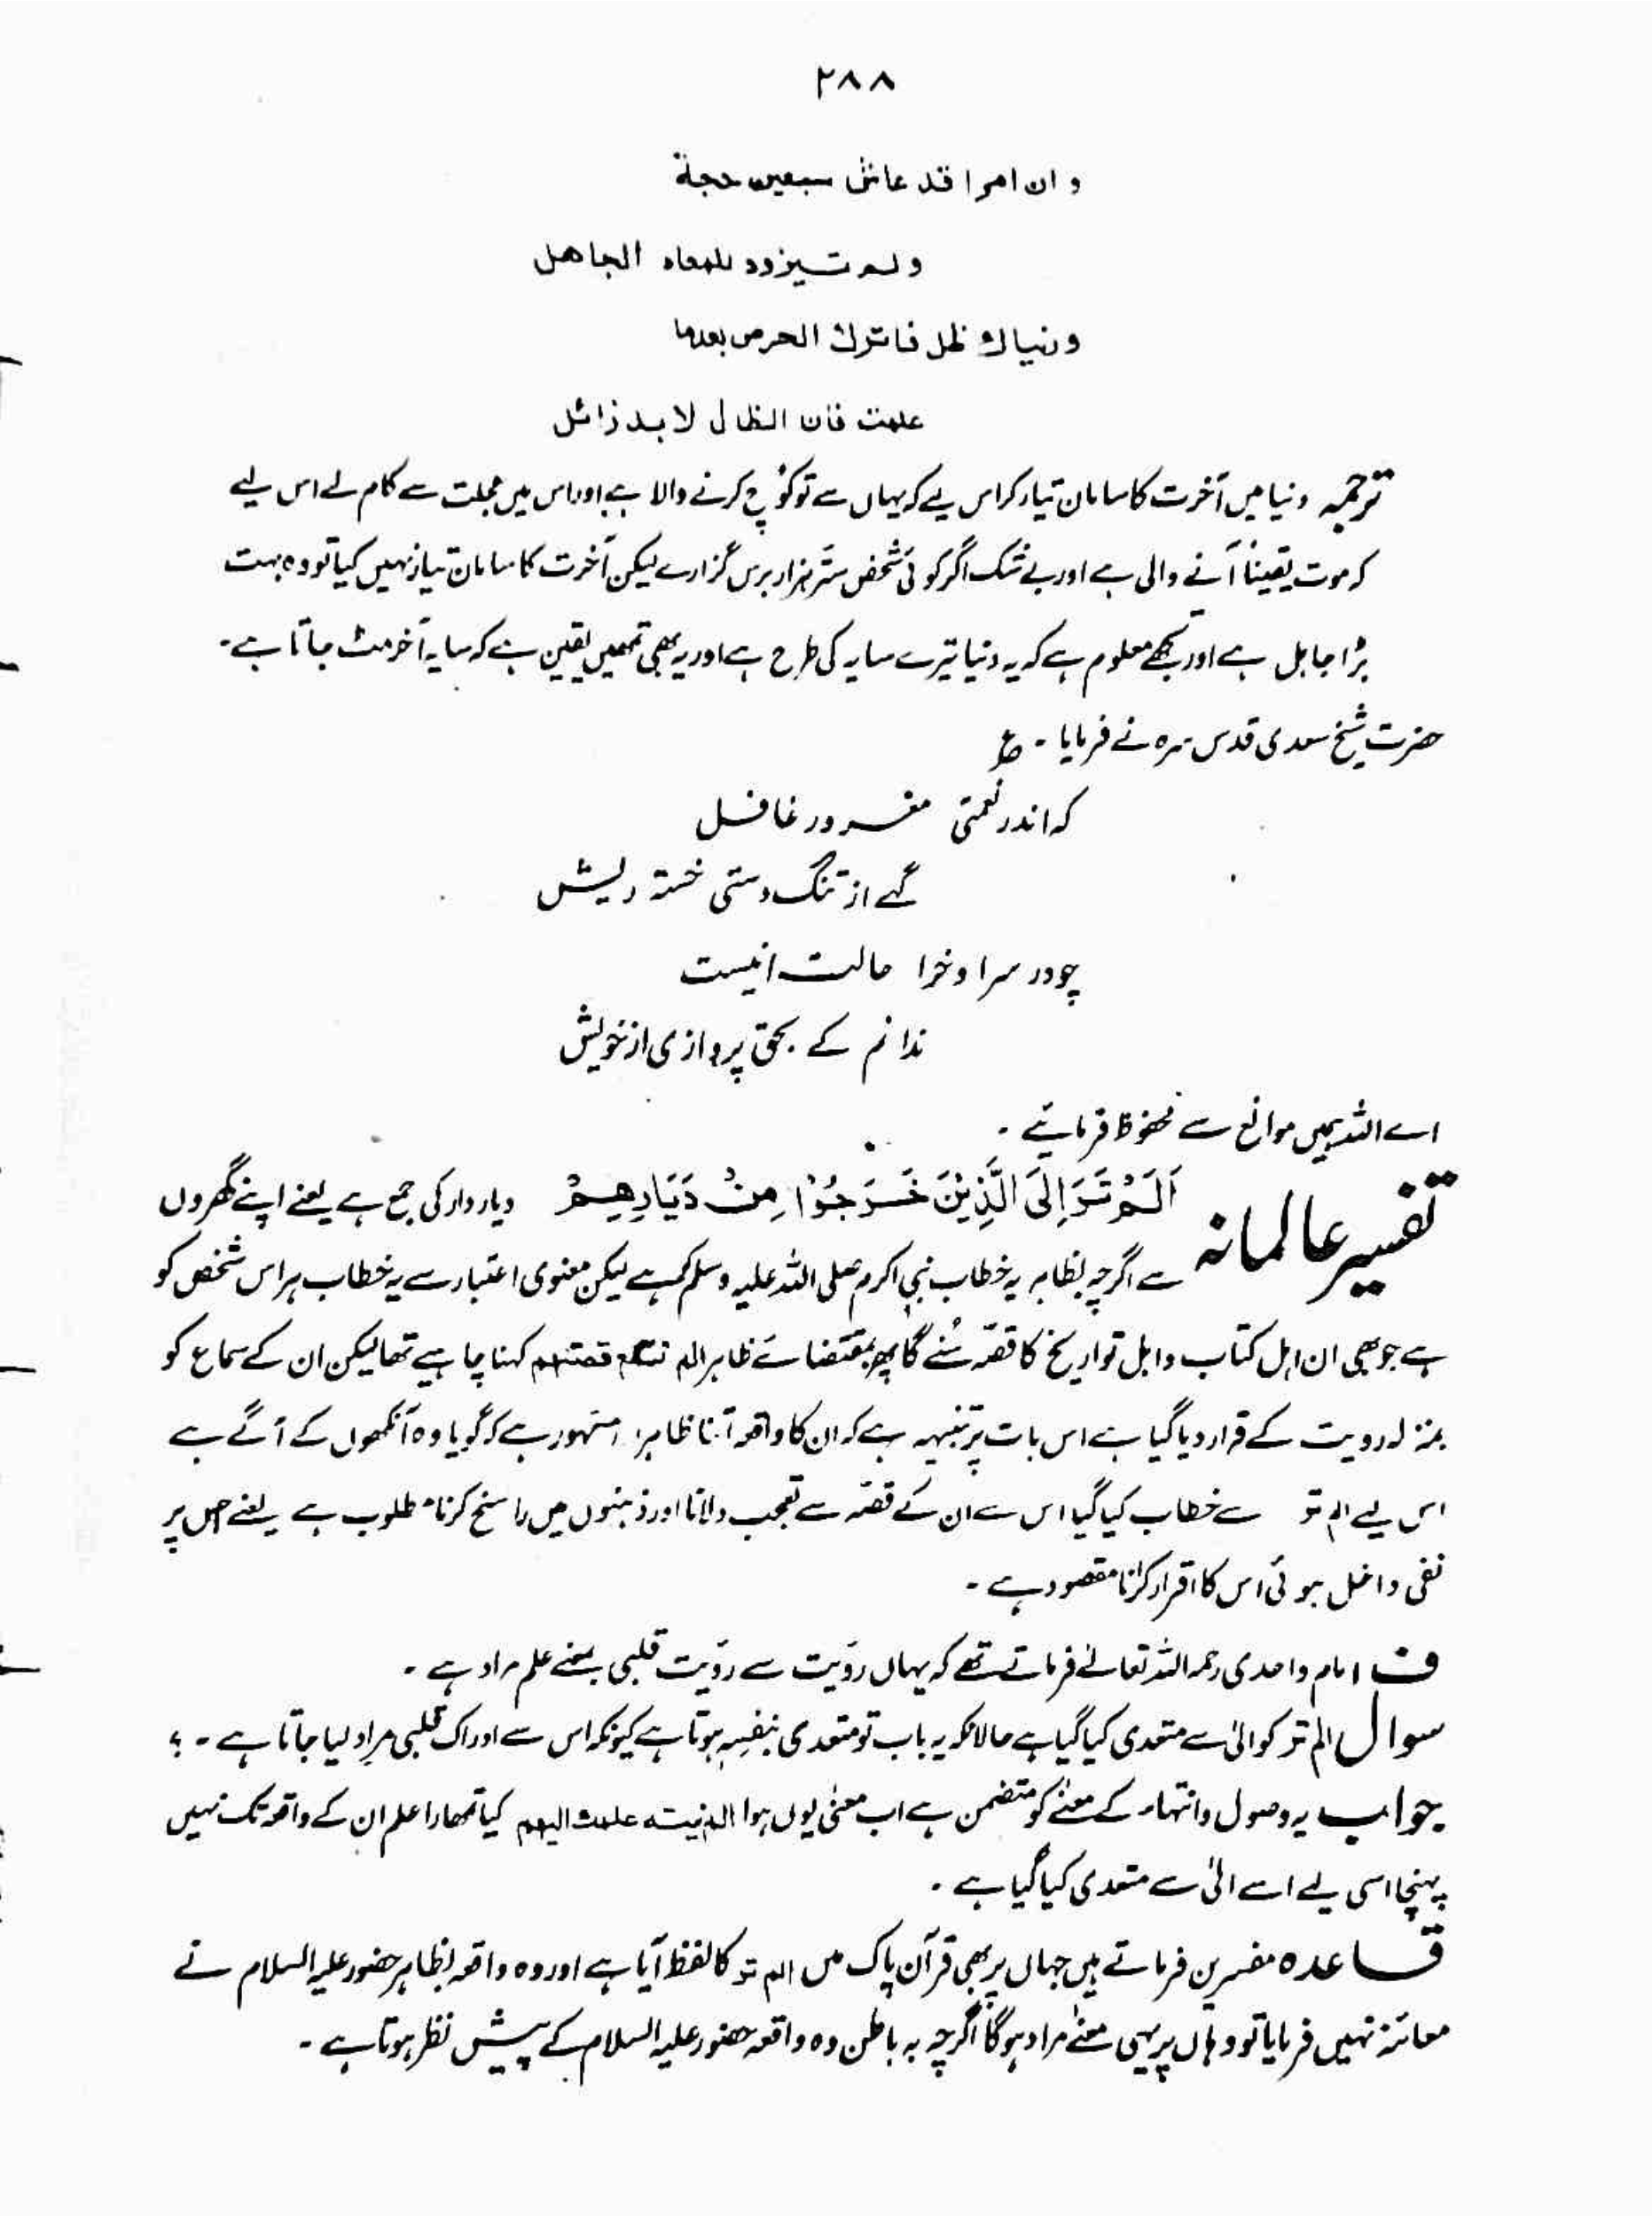 ۲۸۸
و ان امرا قد عاش سبعين حجة
ولم تيزود للمعاد الجاهل
ودنياك ظل فاترك الحرص بعدما
علمت فان الظال لا بد زائل
ترجمہ دنیا میں آخرت کا سامان تیار کر اس لیے کہ یہاں سے تو کوُچ کرنے والا ہے اور اس میں عجلت سے کام لے اس لیے
کہ موت یقیناً آنے والی ہے اور بے شک اگر کوئی شخص ستّر ہزار برس گزارے لیکن آخرت کا سامان تیار نہیں کیا تو وہ بہت
بڑا جاہل ہے اور تجھے معلوم ہے کہ یہ دنیا تیرے سایہ کی طرح ہے اور یہ بھی تمھیں یقین ہے کہ سایہ آخر مٹ جاتا ہے۔
حضرت شیخ سعدی قدس سرہ نے فرمایا ۔ ع
کہ اندر نعمتی مغرور غافل
گہے از تنگ دستی خستہ ریش
چو در سرا و ضرا حالت اینست
ندانم کے بحق پردازی از خویش
اے اللہ ہمیں موانع سے محفوظ فرمائیے ۔
تفسیر عالمانہ اَلَمْ تَرَ اِلَی الَّذِیْنَ خَرَجُوْا مِنْ دِیَارِهِمْ دیار دار کی جمع ہے یعنے اپنے گھروں
سے اگرچہ بظاہر یہ خطاب نبی اکرم صلی اللہ علیہ وسلم کو ہے لیکن معنوی اعتبار سے یہ خطاب ہر اس شخص کو
ہے جو بھی ان اہل کتاب و اہل تواریخ کا قصّہ سُنے گا پھر بمقتضائے ظاہر الم تسمع قصتهم کہنا چاہیے تھا لیکن ان کے سماع کو
بمنزلہ رویت کے قرار دیا گیا ہے اس بات پر تنبیہہ ہے کہ ان کا واقعہ اتنا ظاہر اور مشہور ہے کہ گویا وہ آنکھوں کے آگے ہے
اس لیے الم تر سے خطاب کیا گیا اس سے ان کے قصّہ سے تعجب دلانا اور ذہنوں میں راسخ کرنا مطلوب ہے یعنے جس پر
نفی داخل ہوئی اس کا اقرار کرانا مقصود ہے ۔
ف امام واحدی رحمہ اللہ تعالےٰ فرماتے تھے کہ یہاں روَیت سے روَیت قلبی بمعنے علم مراد ہے ۔
سوال الم تر کو الیٰ سے متعدی کیا گیا ہے حالانکہ یہ باب تو متعدی بنفسِہٖ ہوتا ہے کیونکہ اس سے ادراک قلبی مراد لیا جاتا ہے ۔ ؟
جواب یہ وصول و انتہاء کے معنےٰ کو متضمن ہے اب معنیٰ یوں ہوا الم ینته علمك الیهم کیا تمھارا علم ان کے واقعہ تک نہیں
پہنچا اسی لیے اسے الیٰ سے متعدی کیا گیا ہے ۔
قاعدہ مفسرین فرماتے ہیں جہاں پر بھی قرآن پاک میں الم تر کا لفظ آیا ہے اور وہ واقعہ بظاہر حضور علیہ السلام نے
معائنہ نہیں فرمایا تو وہاں پر یہی معنےٰ مراد ہوگا اگرچہ بہ باطن وہ واقعہ حضور علیہ السلام کے پیش نظر ہوتا ہے ۔